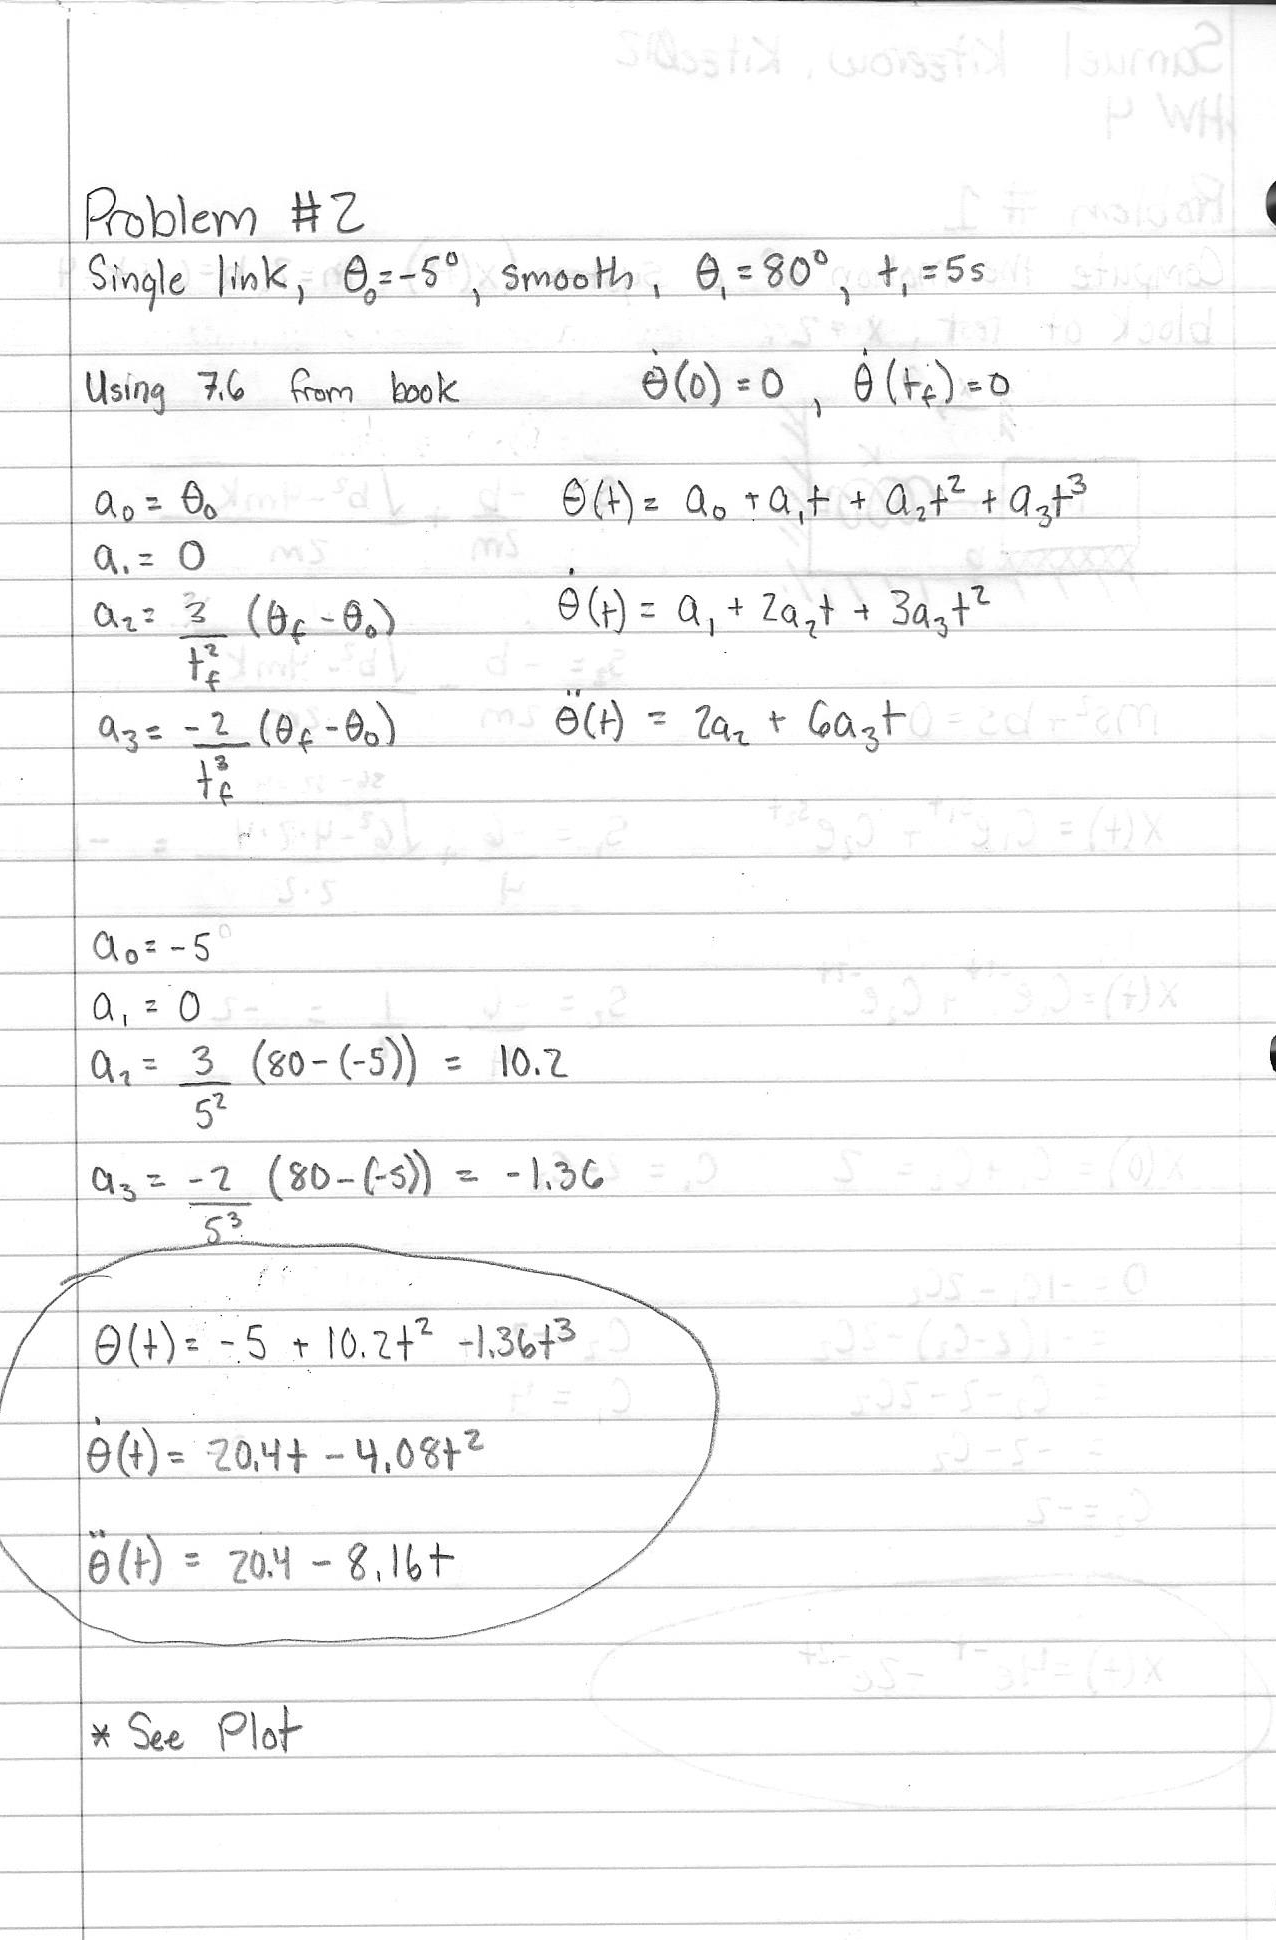 Problem #2
Single link, θ₀=-5°, smooth, θ₁=80°, t₁=5s
Using 7.6 from book θ̇(0)=0, θ̇(t_f)=0
a₀=θ₀ θ(t)= a₀+a₁t + a₂t² + a₃t³
a₁=0
a₂= 3/t_f² (θ_f-θ₀) θ̇(t)= a₁+2a₂t + 3a₃t²
a₃= -2/t_f³ (θ_f-θ₀) θ̈(t) = 2a₂ + 6a₃t
a₀=-5°
a₁=0
a₂= 3/5² (80-(-5)) = 10.2
a₃= -2/5³ (80-(-5)) = -1.36
θ(t)= -5 + 10.2t² -1.36t³
θ̇(t)= 20.4t - 4.08t²
θ̈(t) = 20.4 - 8.16t
* See Plot